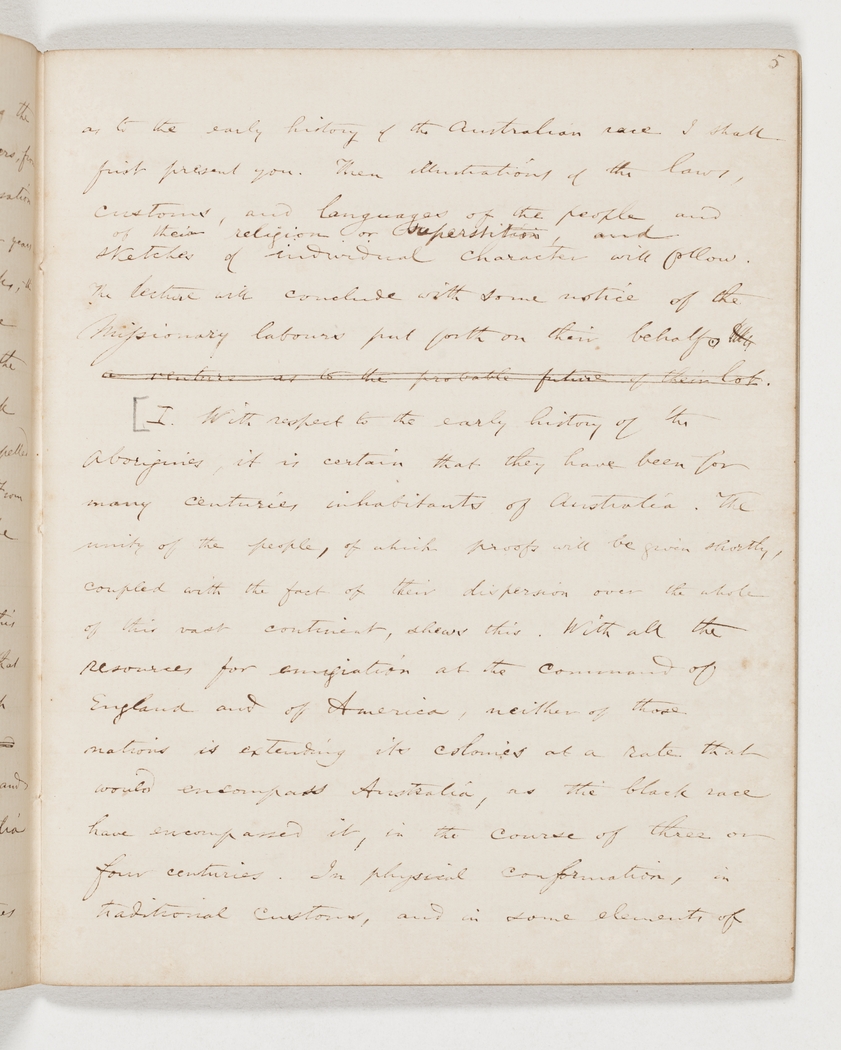 5
as to the early history of the Australian race I shall
first present you. Then illustrations of the laws,
customs, and languages of the people and
of their religion or superstition, and
sketches of individual character will follow.
The lecture will conclude with some notice of the
Missionary labours put forth on their behalf,
a venture as to the probable future of their lot.
[I. With respect to the early history of the
Aborigines, it is certain that they have been for
many centuries inhabitants of Australia. The
unity of the people, of which proofs will be given shortly,
coupled with the fact of their dispersion over the whole
of this vast continent, shews this. With all the
resources for emigration at the command of
England and of America, neither of those
nations is extending its colonies at a rate that
would encompass Australia, as the black race
have encompassed it, in the course of three or
four centuries. In physical conformation, in
traditional customs, and in some elements of